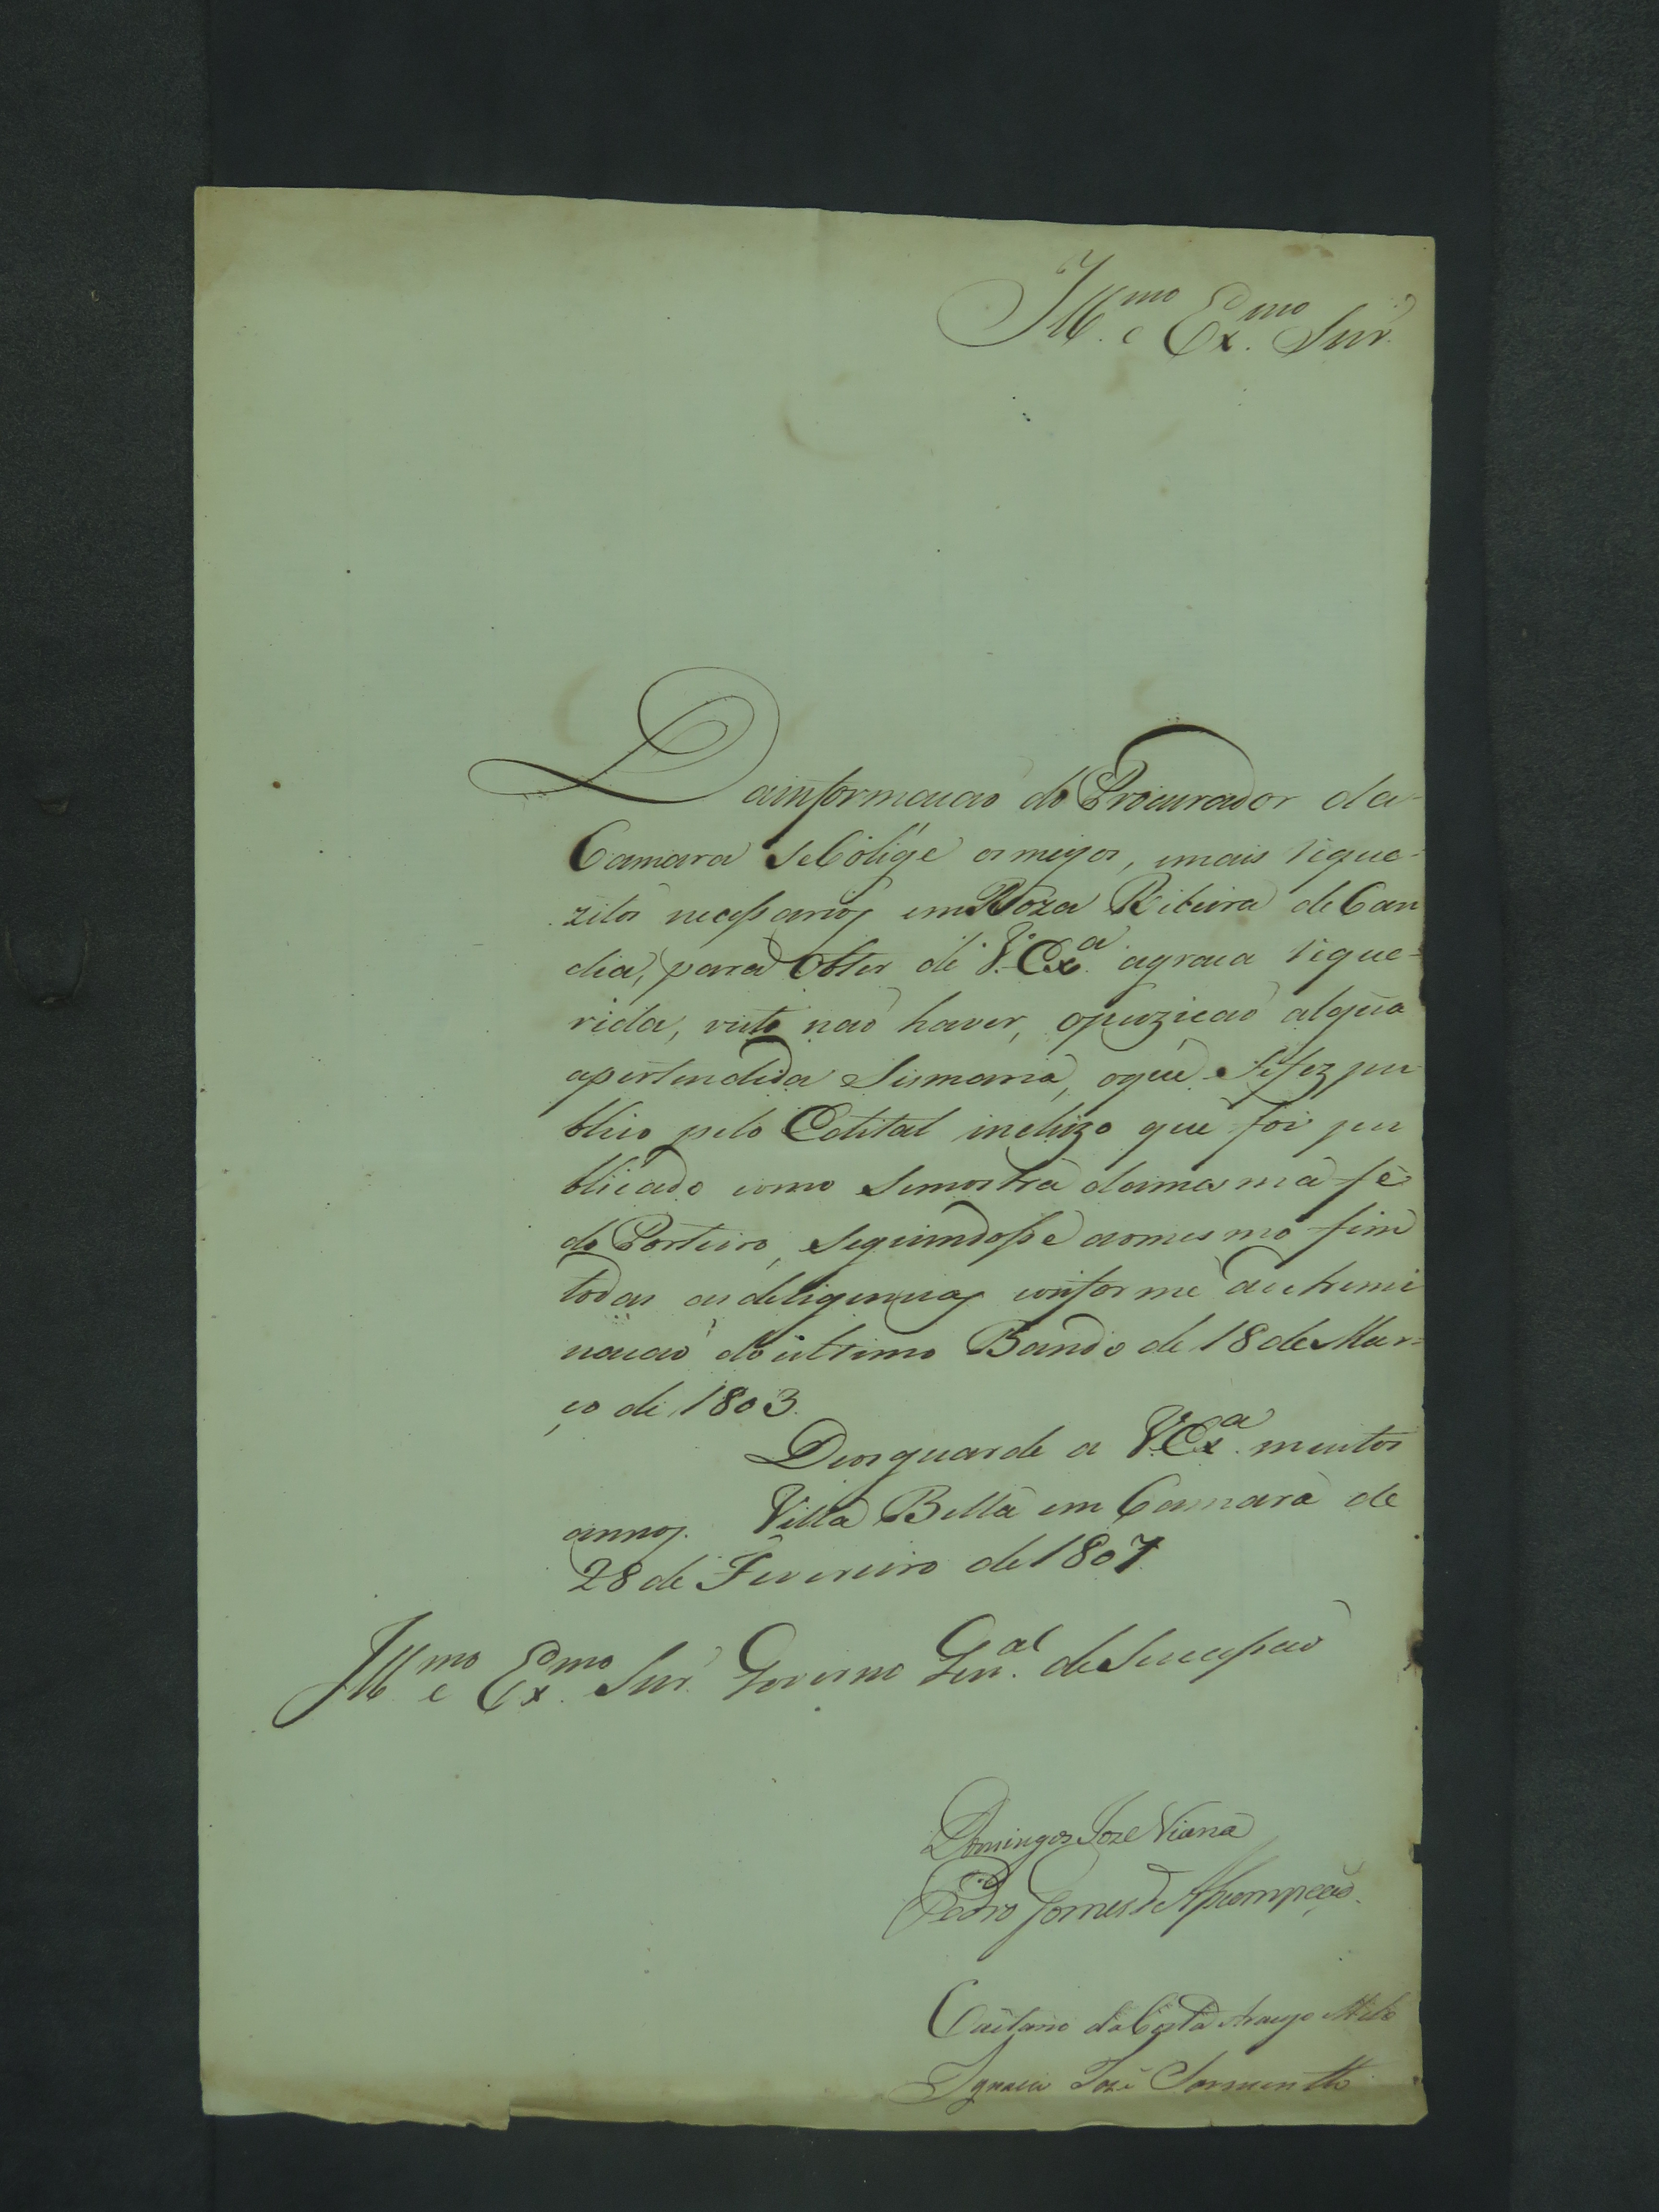 Ill.mo e Ex.mo Snr.
Dainformacaõ do Procurador da
Camara seColige os meyos, emais reque-
zitos necessarios em Roza Ribeira de Can
dia, para obter de V.Ex.a agraca reque-
rida, visto naõ haver, opuzicaõ algũa
apertendida Sismaria, oque sefez pu
blico pelo Edital incluzo que foi pu
blicado como semostra damesma fé
do Porteiro, seguindosse aomesmo fim
todas as deligencias conforme a
nacaõ do ultimo Bando de 18 de Mar-
ço de 1803.
Deos guarde a V.Ex.a muitos
annos. Villa Bella em Camara de
28 de Fevereiro de 1807
Ill.mo e Ex.mo Snr. Governo Gen.al de Sucessaõ
Domingos Joze Viana
Pedro Gomes
Caetano da Costa Araujo Mello
Ignacio Jozé Sarmentto